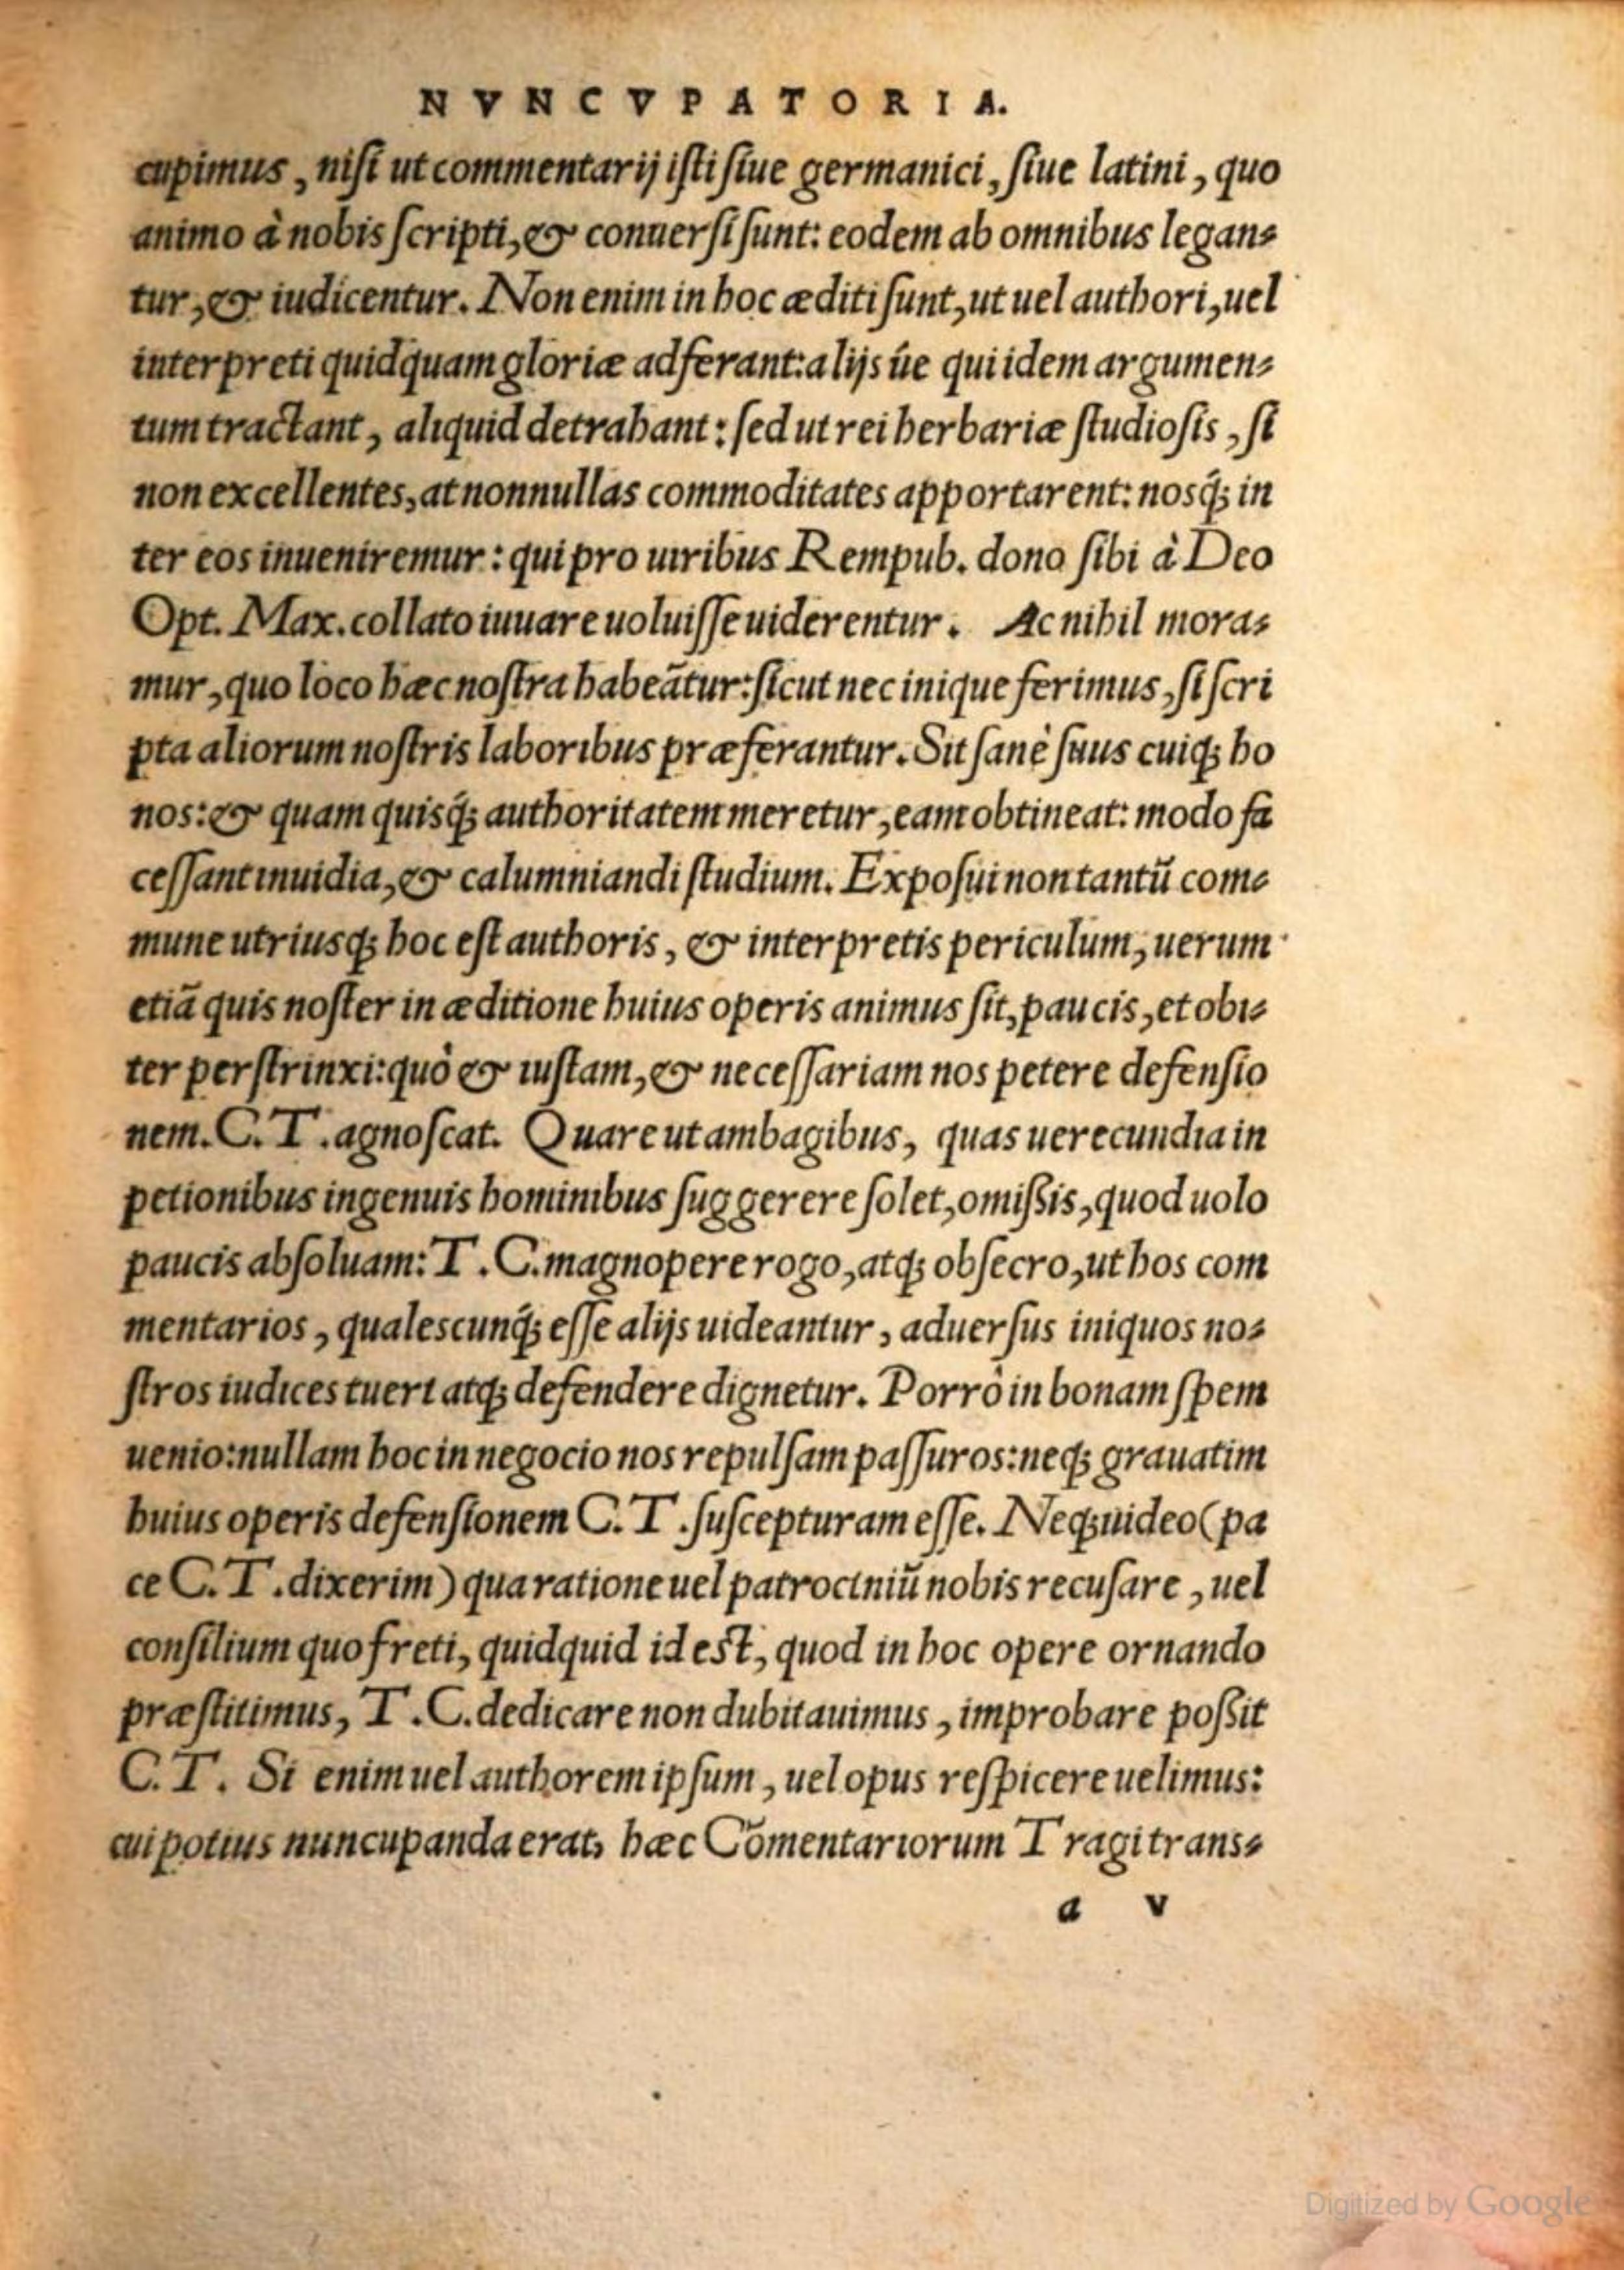 NVNCVPATORIA.
cupimus, nisi ut commentarij isti siue germanici, siue latini, quo
animo à nobis scripti, & conuersi sunt: eodem ab omnibus legan-
tur, & iudicentur. Non enim in hoc æditi sunt, ut uel authori, uel
interpreti quidquam gloriæ adferant: alijs úe qui idem argumen-
tum tractant, aliquid detrahant: sed ut rei herbariæ studiosis, si
non excellentes, at nonnullas commoditates apportarent: nosq́; in
ter eos inueniremur: qui pro uiribus Rempub. dono sibi à Deo
Opt. Max. collato iuuare uoluisse uiderentur. Ac nihil mora-
mur, quo loco hæc nostra habeātur: sicut nec inique ferimus, si scri
pta aliorum nostris laboribus præferantur. Sit sanè suus cuiq; ho
nos: & quam quisq́; authoritatem meretur, eam obtineat: modo fa
cessant inuidia, & calumniandi studium. Exposui non tantū com-
mune utriusq; hoc est authoris, & interpretis periculum, uerum
etiā quis noster in æditione huius operis animus sit, paucis, et obi-
ter perstrinxi: quò & iustam, & necessariam nos petere defensio
nem. C. T. agnoscat. Quare ut ambagibus, quas uerecundia in
petionibus ingenuis hominibus suggerere solet, omißis, quod uolo
paucis absoluam: T. C. magnopere rogo, atq; obsecro, ut hos com
mentarios, qualescunq́; esse alijs uideantur, aduersus iniquos no-
stros iudices tueri atq; defendere dignetur. Porrò in bonam spem
uenio: nullam hoc in negocio nos repulsam passuros: neq; grauatim
huius operis defensionem C. T. suscepturam esse. Neq; uideo (pa
ce C. T. dixerim) qua ratione uel patrociniū nobis recusare, uel
consilium quo freti, quidquid id est, quod in hoc opere ornando
præstitimus, T. C. dedicare non dubitauimus, improbare poßit
C. T. Si enim uel authorem ipsum, uel opus respicere uelimus:
cui potius nuncupanda erat, hæc Cōmentariorum Tragi trans-
a v
Digitized by Google